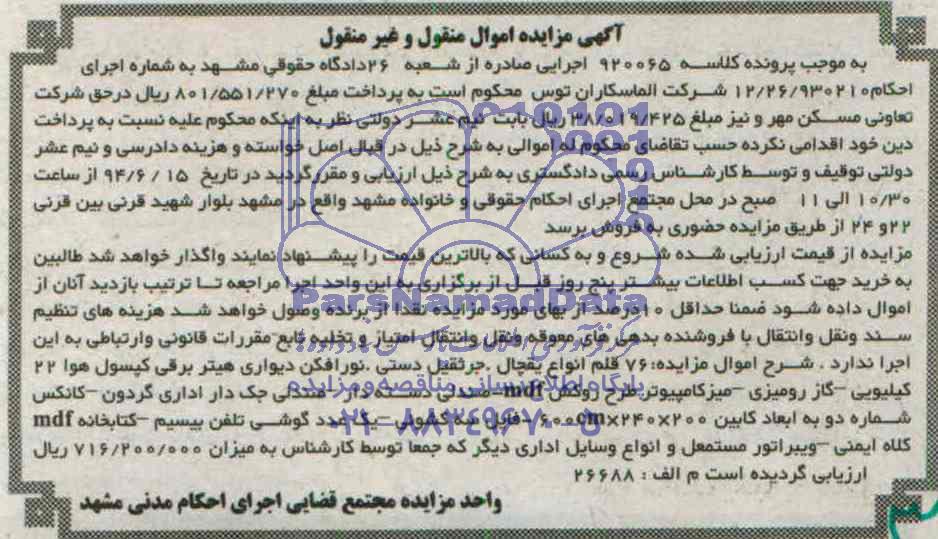 آگهی مزایده اموال منقول و غیر منقول
به موجب پرونده کلاسه ۹۲۰۰۶۵ اجرایی صادره از شعبه ۲۶دادگاه حقوقی مشهد به شماره اجرای
احکام۱۲/۲۶/۹۳۰۲۱۰ شرکت الماسکاران توس محکوم است به پرداخت مبلغ ۸۰۱/۵۵۱/۲۷۰ ریال درحق شرکت
تعاونی مسکن مهر و نیز مبلغ ۳۸/۰۱۹/۴۲۵ ریال بابت نیم عشر دولتی نظر به اینکه محکوم علیه نسبت به پرداخت
دین خود اقدامی نکرده حسب تقاضای محکوم له اموالی به شرح ذیل در قبال اصل خواسته و هزینه دادرسی و نیم عشر
دولتی توقیف و توسط کارشناس رسمی دادگستری به شرح ذیل ارزیابی و مقرر گردید در تاریخ ۱۵ / ۹۴/۶ از ساعت
۱۰/۳۰ الی ۱۱ صبح در محل مجتمع اجرای احکام حقوقی و خانواده مشهد واقع در مشهد بلوار شهید قرنی بین قرنی
۲۲و ۲۴ از طریق مزایده حضوری به فروش برسد
مزایده از قیمت ارزیابی شده شروع و به کسانی که بالاترین قیمت را پیشنهاد نمایند واگذار خواهد شد طالبین
به خرید جهت کسب اطلاعات بیشتر پنج روز قبل از برگزاری به این واحد اجرا مراجعه تا ترتیب بازدید آنان از
اموال داده شود ضمنا حداقل ۱۰درصد از بهای مورد مزایده نقدا از برنده وصول خواهد شد هزینه های تنظیم
سند ونقل وانتقال با فروشنده بدهی های معوقه ونقل وانتقال امتیاز و تخلیه تابع مقررات قانونی وارتباطی به این
اجرا ندارد . شرح اموال مزایده:۷۶ قلم انواع یخچال .جرثقیل دستی .نورافکن دیواری هیتر برقی کپسول هوا ۲۲
کیلیویی –گاز رومیزی –میزکامپیوتر طرح روکش mdf–صندلی دسته دار – صندلی جک دار اداری گردون –کانکس
شماره دو به ابعاد کابین ۲۰۰×۲۴۰×۶۰۰cm –فایل سه کشوئی – یک عدد گوشی تلفن بیسیم –کتابخانه mdf
کلاه ایمنی –ویبراتور مستعمل و انواع وسایل اداری دیگر که جمعا توسط کارشناس به میزان ۷۱۶/۲۰۰/۰۰۰ ریال
ارزیابی گردیده است م الف : ۲۶۶۸۸
واحد مزایده مجتمع قضایی اجرای احکام مدنی مشهد
ParsNamadData
پایگاه اطلاع رسانی مناقصه و مزایده
۰۲۱-۸۸۳۴۹۶۷۰